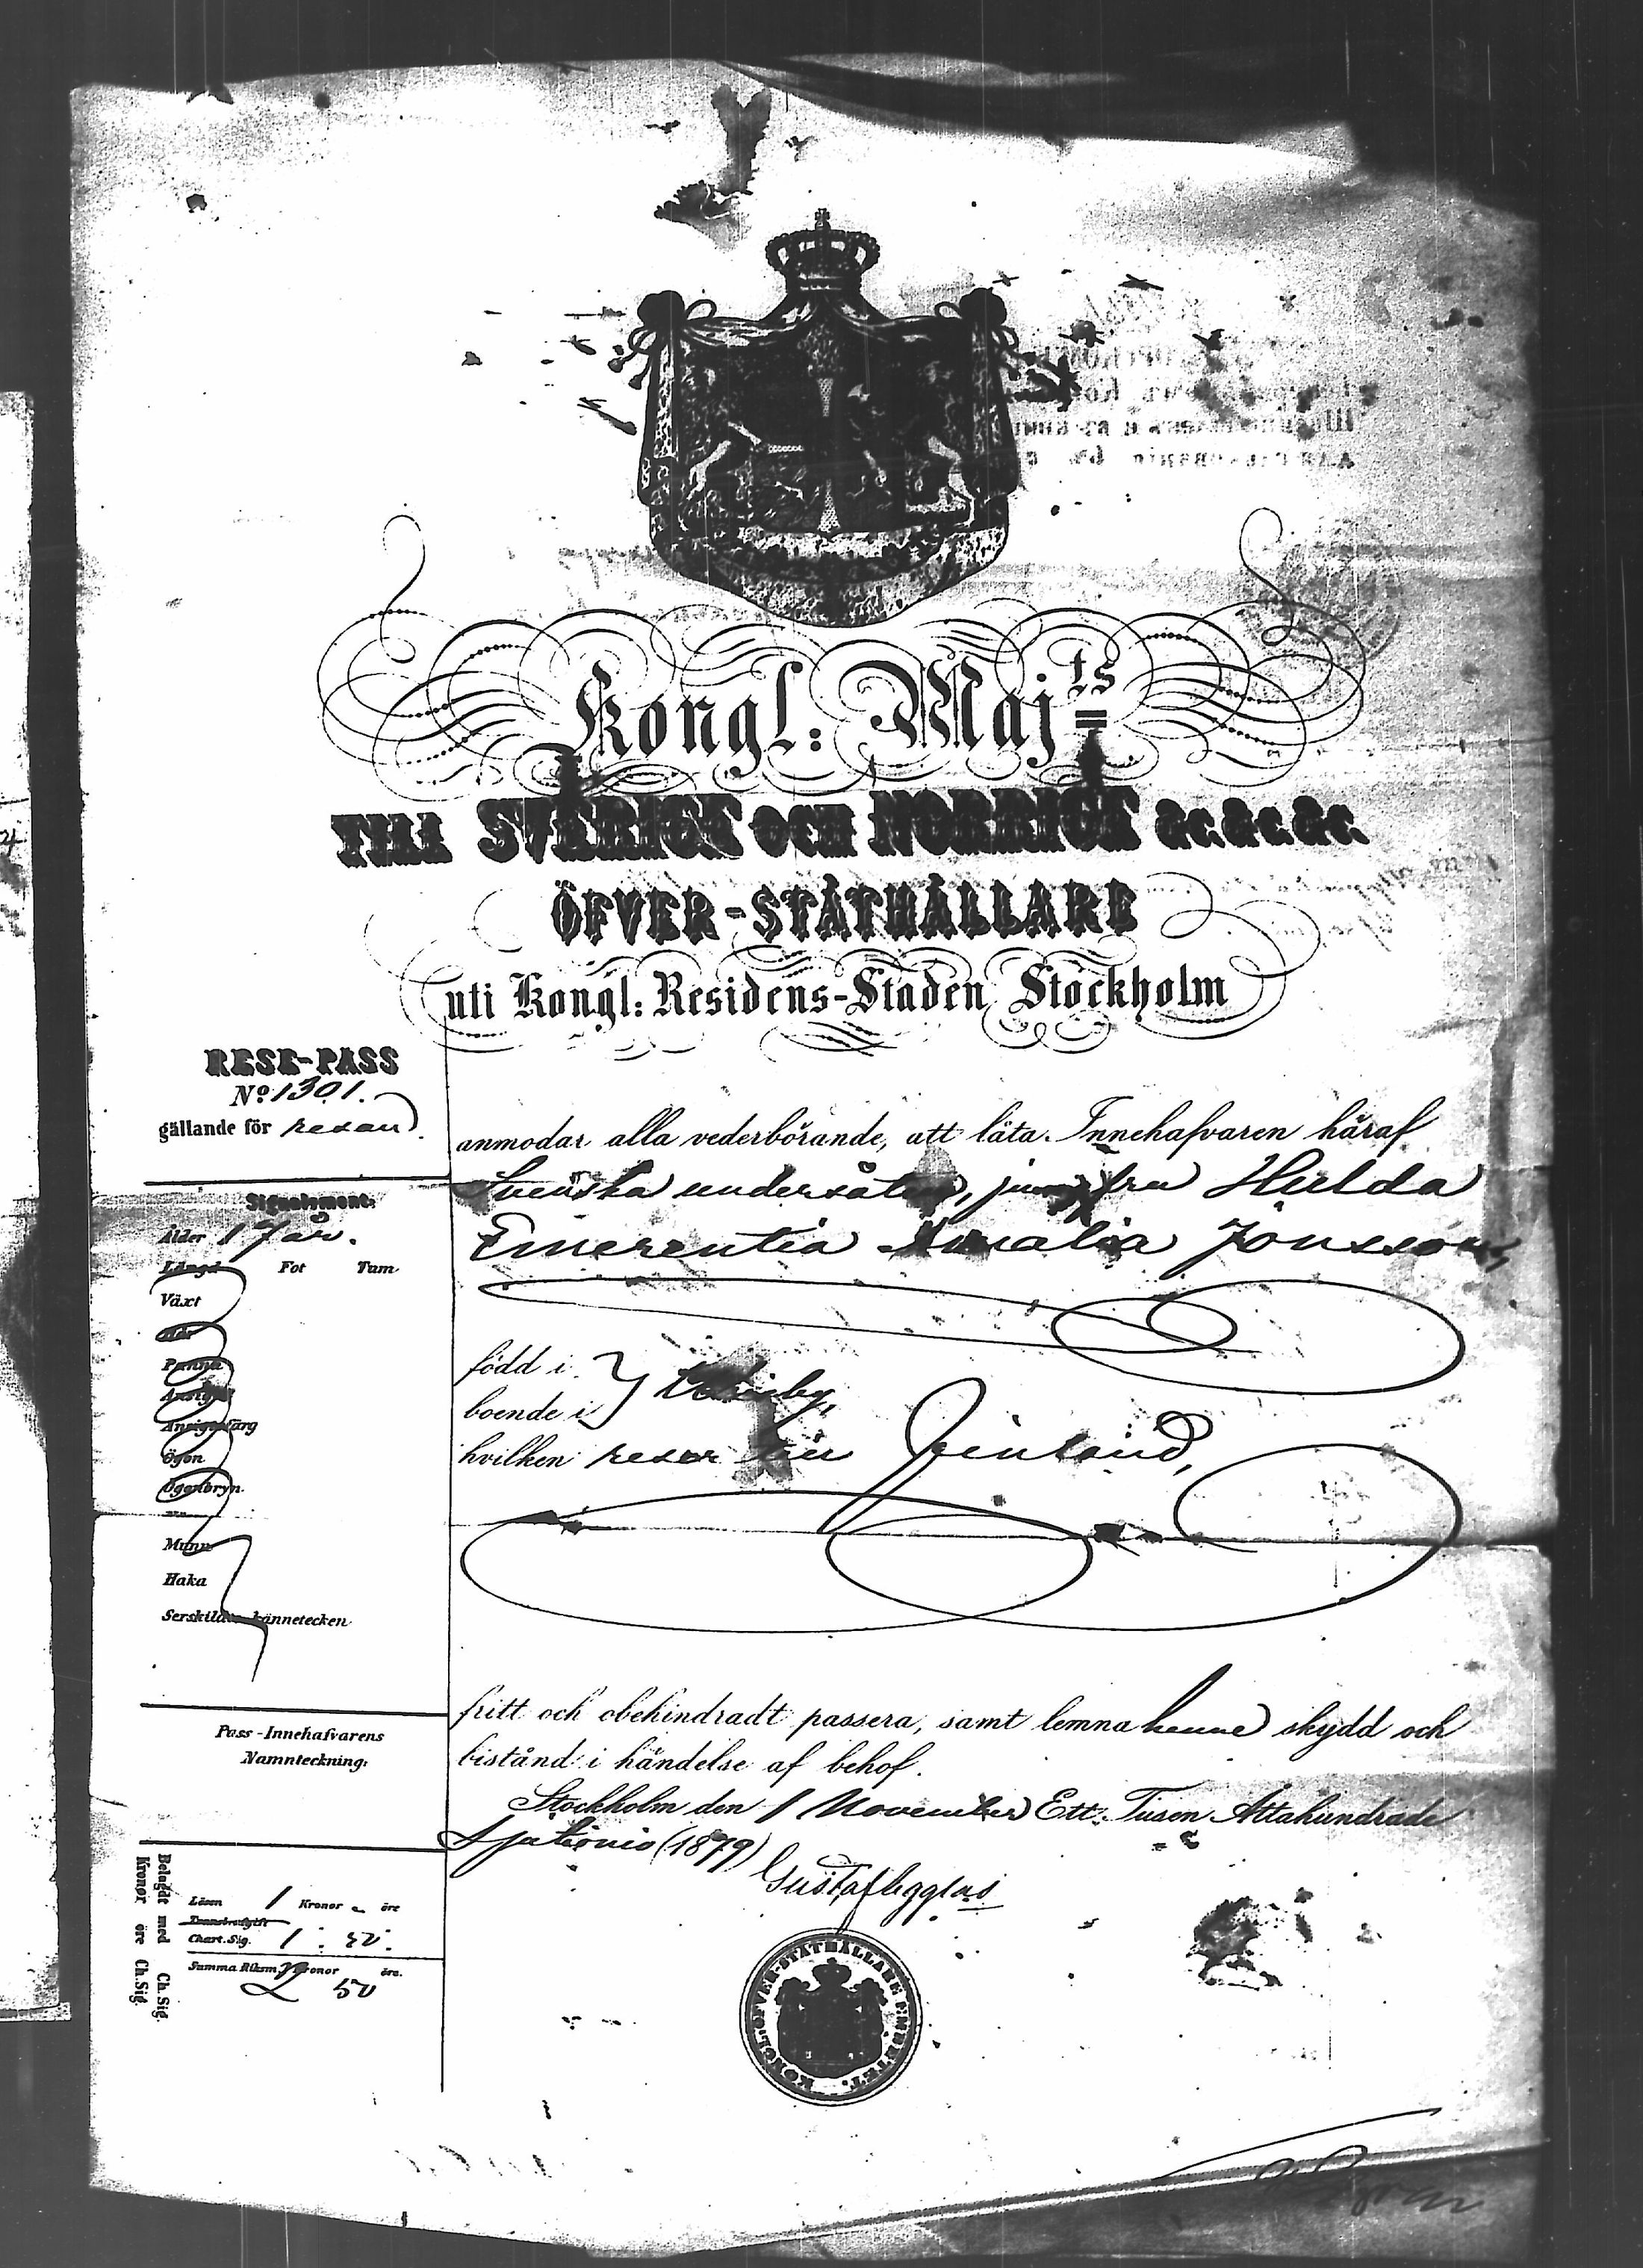 Kongl: Maj:ts
TILL SVERIGE OCH NORRIGE &c. &c. &c.
ÖFVER-STÅTHÅLLARE
uti Kongl: Residens-Staden Stockholm
RESE-PASS
No 1301.
gällande för resan.
anmodar alla vederbörande, att låta Innehafvaren häraf
Svenska undersåten, jungfru Hulda
Emerentia Amalia Jonsson,
Signalement.
Ålder 17 år.
Längd Fot Tum
Växt
Hår
Panna
Ansigte
Ansigtsfärg
Ögon
Ögonbryn
Mun
Haka
Serskilda kännetecken
född i
boende i Wisby,
hvilken reser till Finland,
fritt och obehindradt passera, samt lemna henne skydd och
bistånd i händelse af behof.
Stockholm den 1 November Ett Tusen Åttahundrade
Sjutionio (1879)
Pass-Innehafvarens
Namnteckning:
Belagdt med Ch.Sig.
Kronor öre Ch.Sig.
Lösen 1 Kronor - öre
Transtreafgift
Chart. Sig. 1 : 50.
Summa Riksm. Kronor öre.
2 50
KONGL: ÖFVER-STÅTHÅLLARE EMBETET.